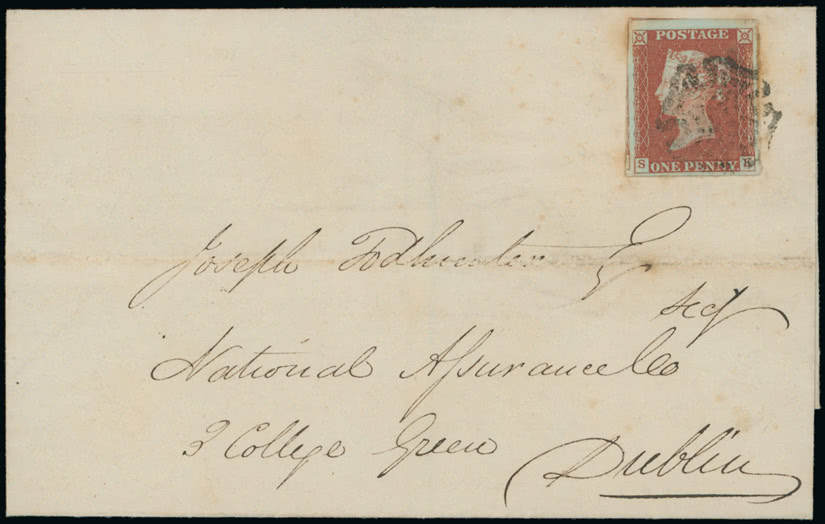 POSTAGE
S ONE PENNY K
Joseph Todhunter Esq
Secy
National Assurance Co
3 College Green
Dublin